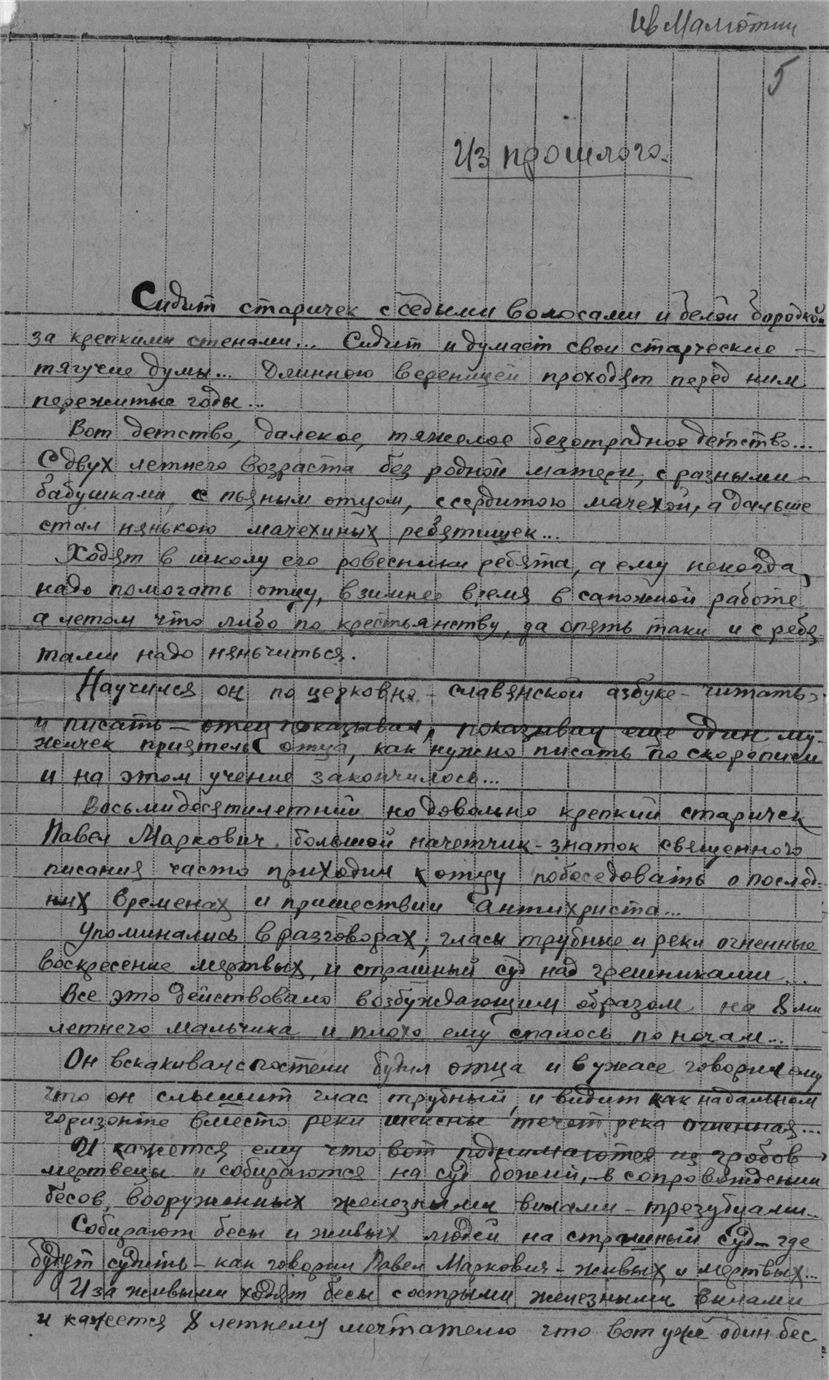 Ив Малютин
5
Из прошлого.
Сидит старичек с седыми волосами и белой бородкой
за крепкими стенами... Сидит и думает свои старческие –
тягучие думы... Длинною вереницей проходят перед ним
пережитые годы...
Вот детство, далекое, тяжелое безотрадное детство...
С двух летнего возраста без родной матери, с разными –
бабушками, с пьяным отцом, с сердитою мачехой, а дальше
стал нянькою мачехиных ребятишек...
Ходят в школу его ровесники ребята, а ему некогда,
надо помогать отцу, в зимнее время в сапожной работе
а летом что либо по крестьянству, да опять таки и с ребя
тами надо няньчиться.
Научился он по церковно – славянской азбуке – читать,
и писать – отец показывал, показывал еще один му-
жичек приятель отца, как нужно писать по скорописи
и на этом учение закончилось...
Восьмидесятилетний но довольно крепкий старичек
Павел Маркович, большой начетчик – знаток священного
писания часто приходил к отцу побеседовать о послед-
них временах и пришествии антихриста...
Упоминались в разговорах, гласы трубные и реки огненные
воскресение мертвых, и страшный суд над грешниками...
Все это действовало возбуждающим образом на 8 ми
летнего мальчика и плохо ему спалось по ночам...
Он вскакивал с постели будил отца и в ужасе говорил ему
что он слышит глас трубный, и видит как на дальном
горизонте вместо реки шексны течет река огненная...
И кажется ему что вот поднимаются из гробов
мертвецы и собираются на суд божий, – в сопровождении
бесов, вооруженных железными вилами – трезубцами...
Собирают бесы и живых людей на страшный суд – где
будут судить – как говорил Павел Маркович – живых и мертвых...
И за живыми ходят бесы с острыми железными вилами
и кажется 8 летнему мечтателю что вот уже один бес